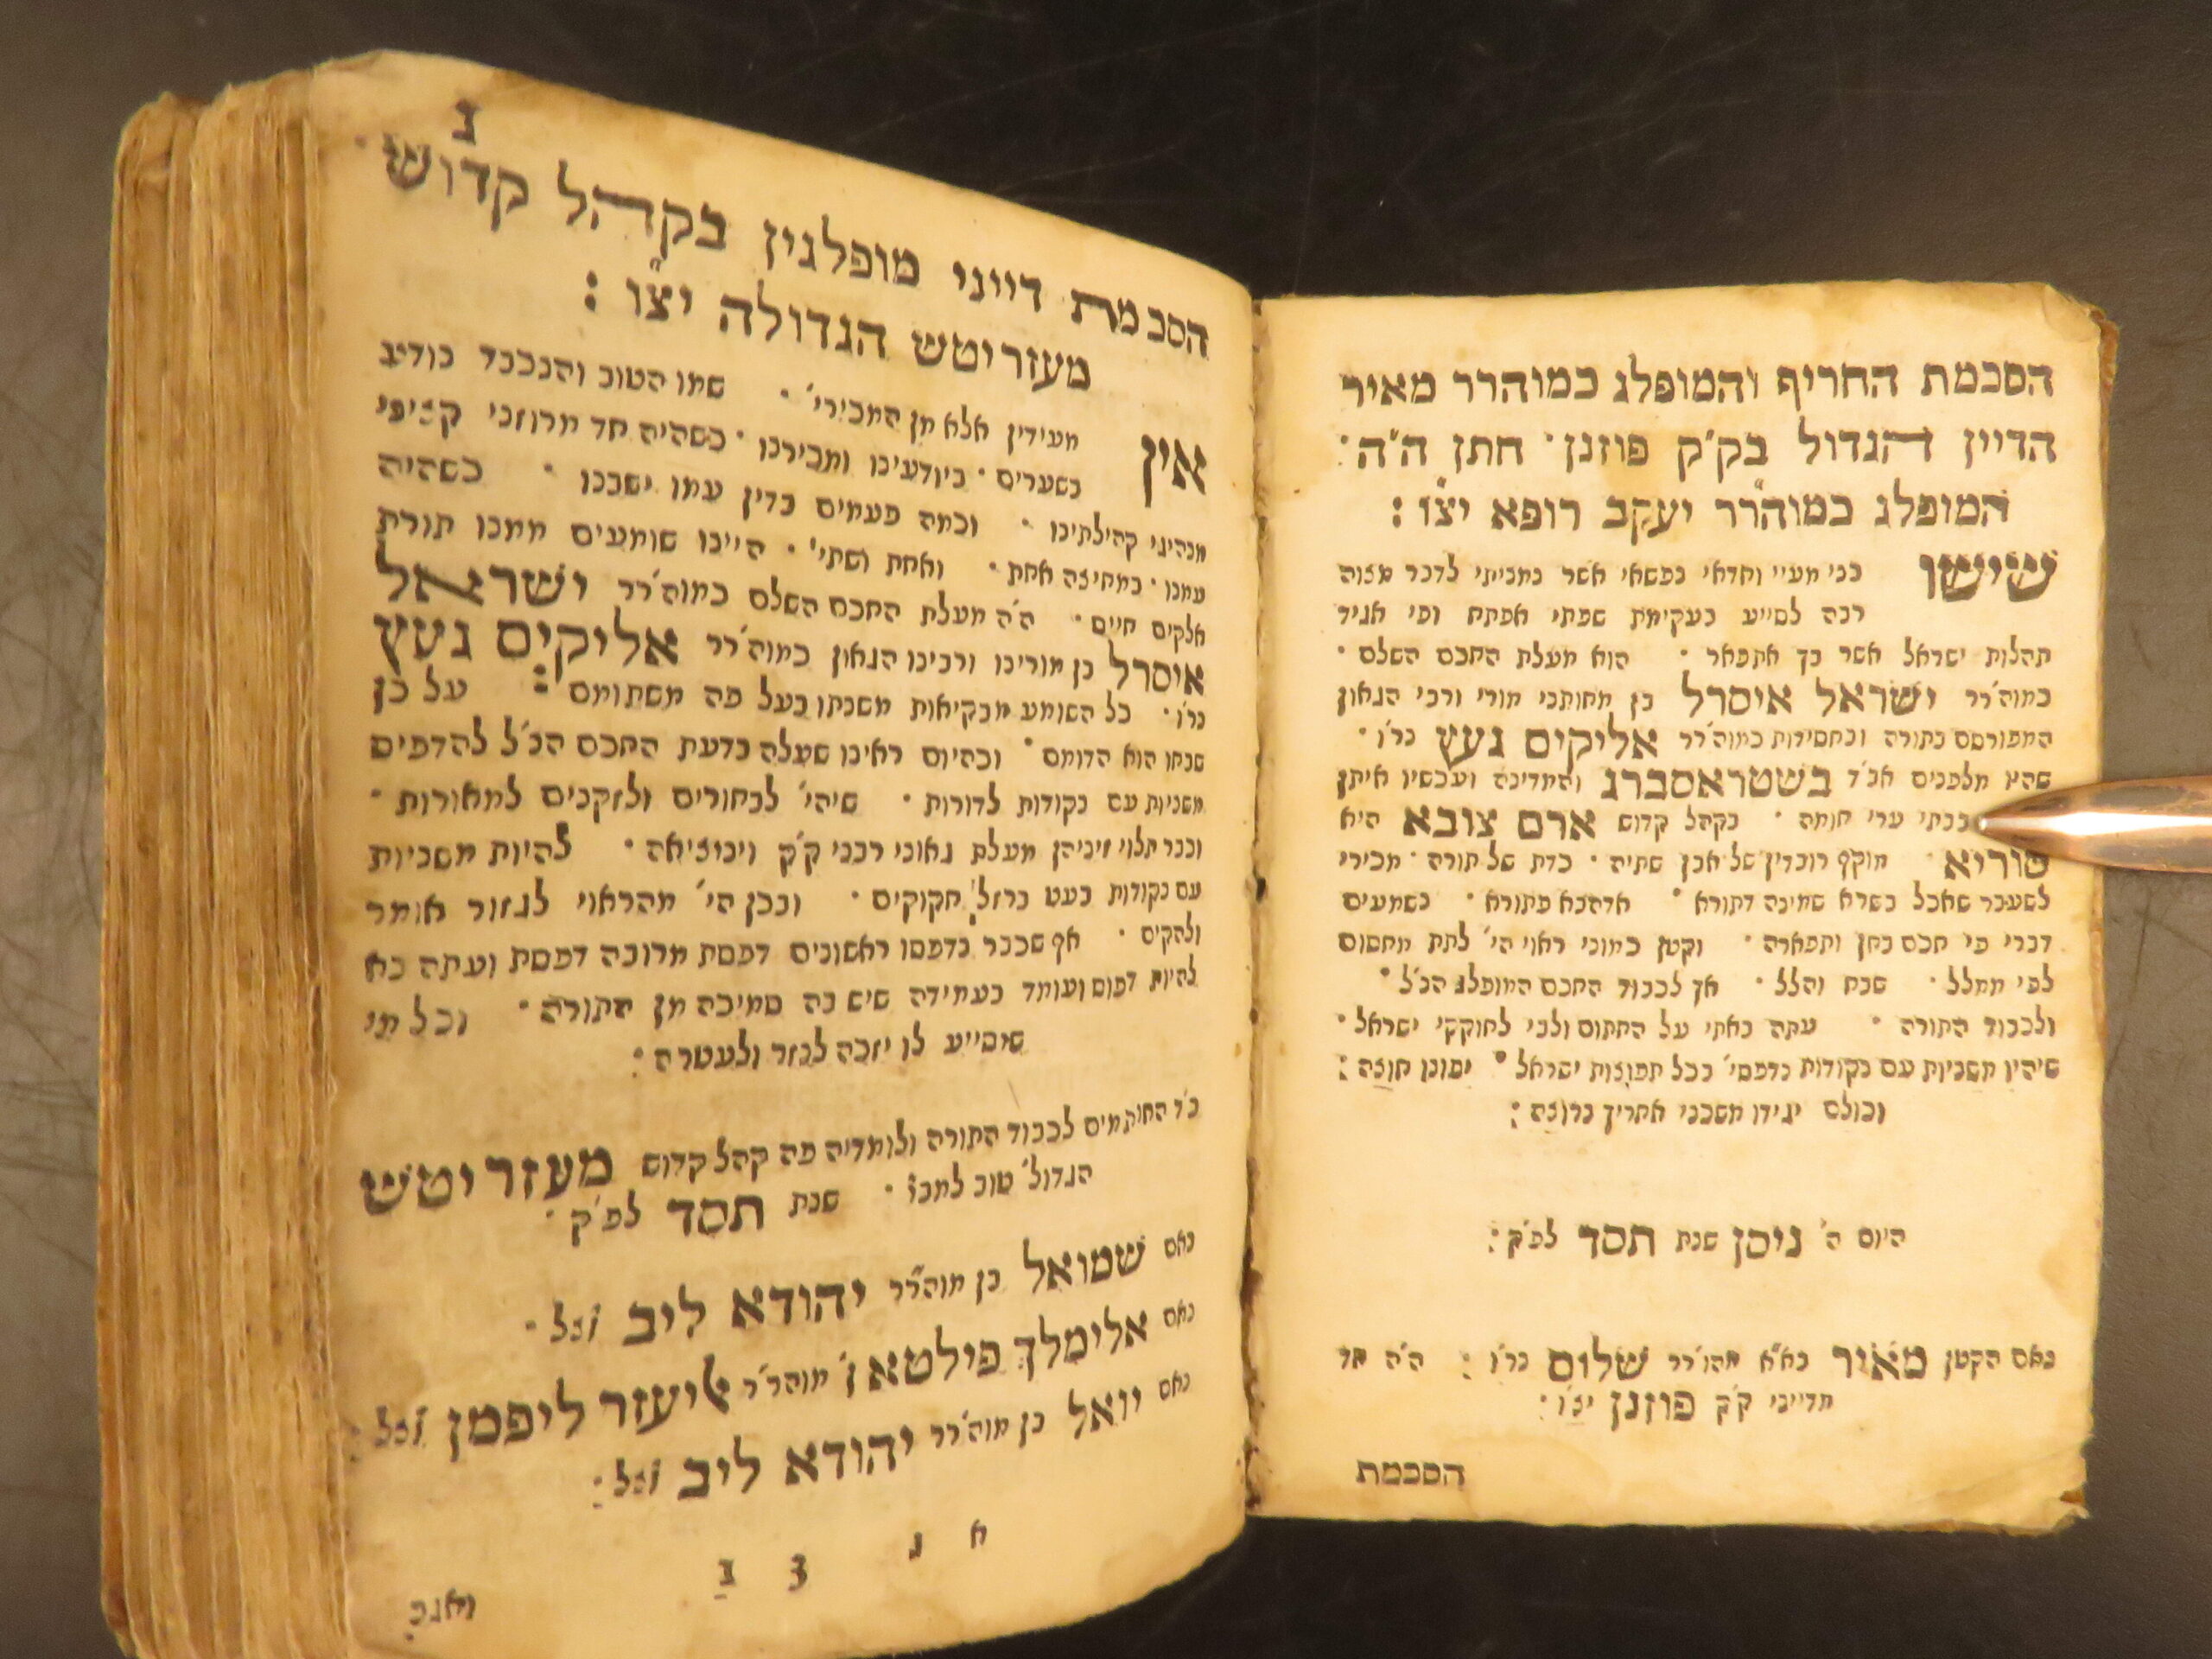 הסכמת החריף והמופלג כמוהרר מאיר
הדיין הגדול בק"ק פוזנן · חתן ה"ה :
המופלג כמוהרר יעקב רופא יצ"ו :
שישו בני מעיי וחדאי נפשאי אשר נתביתי לדבר מצוה
רבה לסייע בעקימת שפתי אפתח ופי אגיד
תהלות ישראל אשר בך אתפאר · הוא מעלת החכם השלם ·
כמוה"רר ישראל איסרל בן מחותני מורי ורבי הגאון
המפורסם בתורה ובחסידות כמוה"רר אליקים געץ נר"ו ·
שהי' מלפנים אב"ד בשטראסברג והמדינה ועכשיו איתן
בבתי ערי חומה · בקהל קדוש ארם צובא היא
סוריא · מוקף רובדין של אבן שתיה · כדת של תורה · מכירי
לשעבר שאכל בשרא שמינה דתורא · אדהכא פתורא · כשמעים
דברי פי חכם בחן ותפארה · וקטן כמוני ראוי הי' לתת מחסום
לפי ממלל · שבח והלל · אך לכבוד החכם המופלג הנ"ל ·
ולכבוד התורה · עתה באתי על החתום ולבי לחוקקי ישראל ·
שיהיו משניות עם נקודות נדפסי' בכל תפוצות ישראל · יפוצו חוצה :
וכולם יגידו משכני אחריך נרוצה :
היום ה' ניסן שנת תסד לפ"ק :
נאם הקטן מאיר בא"א מהו"רר שלום נר"ו : ה"ה חד
מדייני ק"ק פוזנן יצ"ו :
הסכמת
ב
הסכמת דייני מופלגין בקהל קדוש
מעזריטש הגדולה יצ"ו :
אין מעידין אלא מן המכירי' · שמו הטוב והנכבד נודע
בשערים · ביודעינו ומכירנו · כשהיה חד מרוזני קציני
מנהיגי קהילתינו · וכמה פעמים בדין עמו ישבנו · כשהיה
עמנו · במחיצה אחת · ואחת ושתי' · היינו שומעים ממנו תורת
אלקים חיים · ה"ה מעלת החכם השלם כמוה"רר ישראל
איסרל בן מורינו ורבינו הגאון כמוה"רר אליקים געץ
נר"ו · כל השומע מבקיאות משנתו בעל פה משתומם : על כן
שבחו הוא הדומם · ובהיום ראינו שעלה בדעת החכם הנ"ל להדפים
משניות עם נקודות לדורות · שיהי' לבחורים ולזקנים למאורות ·
וכבר תלוי זיניהן מעלת גאוני רבני ק"ק וינוציאה · להיות משניות
עם נקודות בעט ברזל חקוקים · ובכן הי' מהראוי לגזור אומר
ולהקים · אף שכבר נדפסו ראשונים דפסת מרובה דפסת ועתה בא
להיות דפוס ועומד בעמידה שיש בה סמיכה מן התורה · וכל מי
שמסייע לו יזכה לנזר ולעטרה :
כ"ד החותמים לכבוד התורה ולומדיה פה קהל קדוש מעזריטש
הגדול' טוב למבי' · שנת תסד לפ"ק ·
נאם שמואל בן מוה"רר יהודא ליב זצל ·
נאם אלימלך פילטא ן' מוהר"ר אליעזר ליפמן זצל :
נאם יואל בן מוה"רר יהודא ליב זצל :
א ג צ ב
ואגב